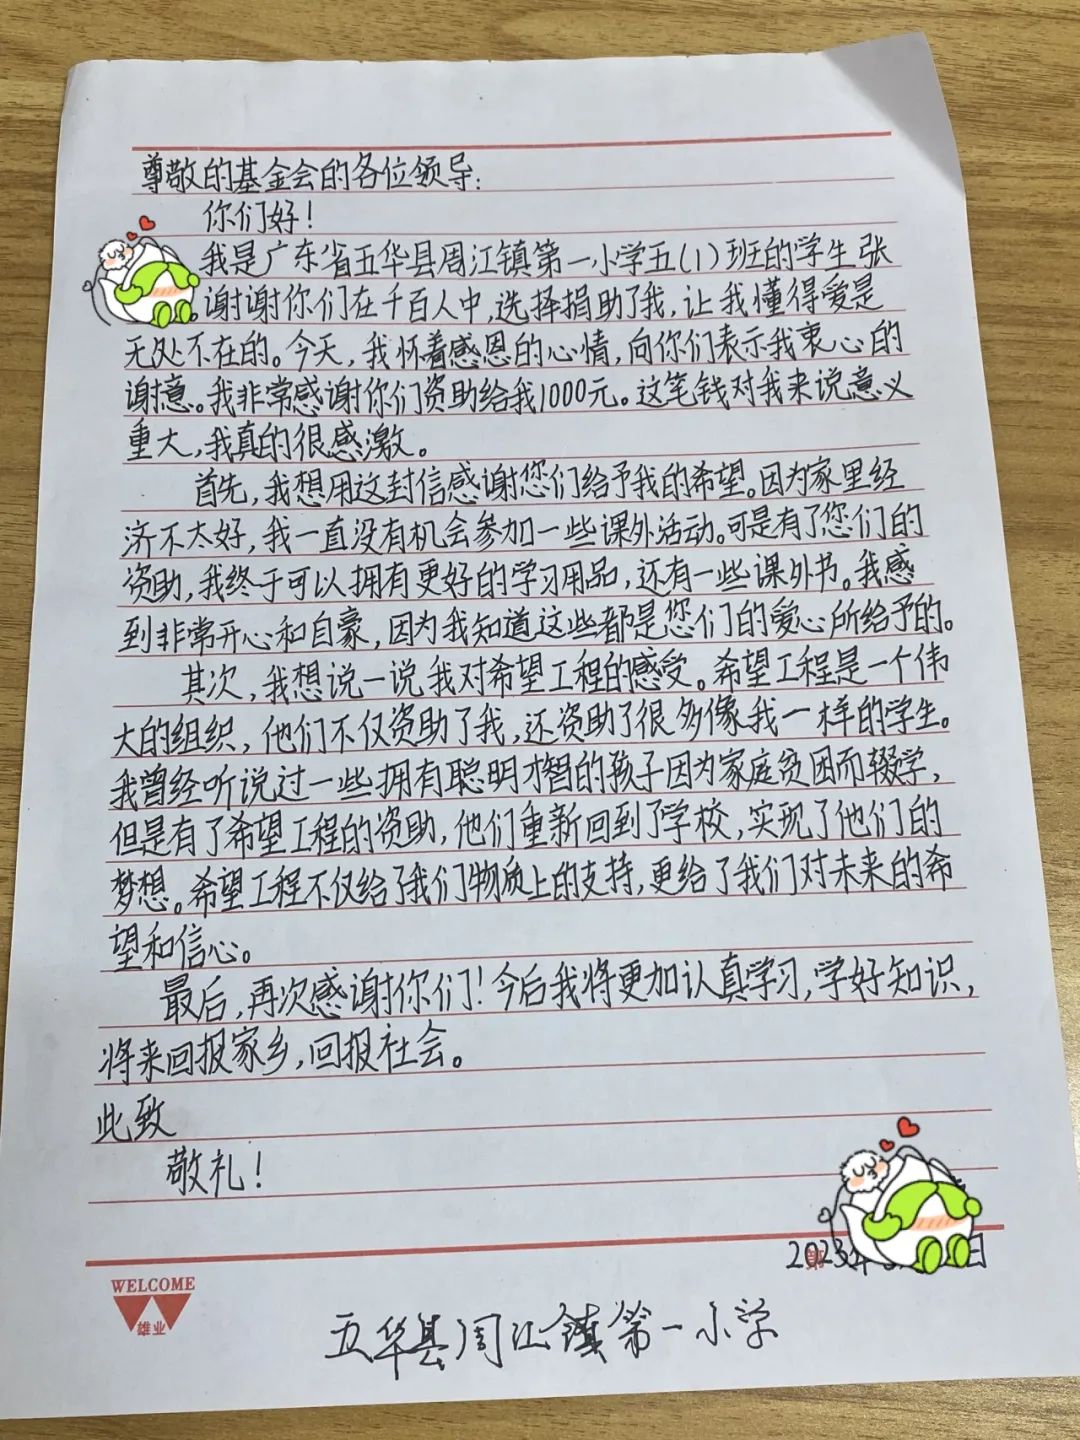 尊敬的基金会的各位领导：
你们好！
我是广东省五华县周江镇第一小学五(1)班的学生张
。谢谢你们在千百人中,选择捐助了我,让我懂得爱是
无处不在的。今天,我怀着感恩的心情,向你们表示我衷心的
谢意。我非常感谢你们资助给我1000元。这笔钱对我来说意义
重大,我真的很感激。
首先,我想用这封信感谢您们给予我的希望。因为家里经
济不太好,我一直没有机会参加一些课外活动。可是有了您们的
资助,我终于可以拥有更好的学习用品,还有一些课外书。我感
到非常开心和自豪,因为我知道这些都是您们的爱心所给予的。
其次,我想说一说我对希望工程的感受。希望工程是一个伟
大的组织,他们不仅资助了我,还资助了很多像我一样的学生。
我曾经听说过一些拥有聪明才智的孩子因为家庭贫困而辍学,
但是有了希望工程的资助,他们重新回到了学校,实现了他们的
梦想。希望工程不仅给了我们物质上的支持,更给了我们对未来的希
望和信心。
最后,再次感谢你们！今后我将更加认真学习,学好知识,
将来回报家乡,回报社会。
此致
敬礼！
2023年 日
WELCOME
雄业
五华县周江镇第一小学